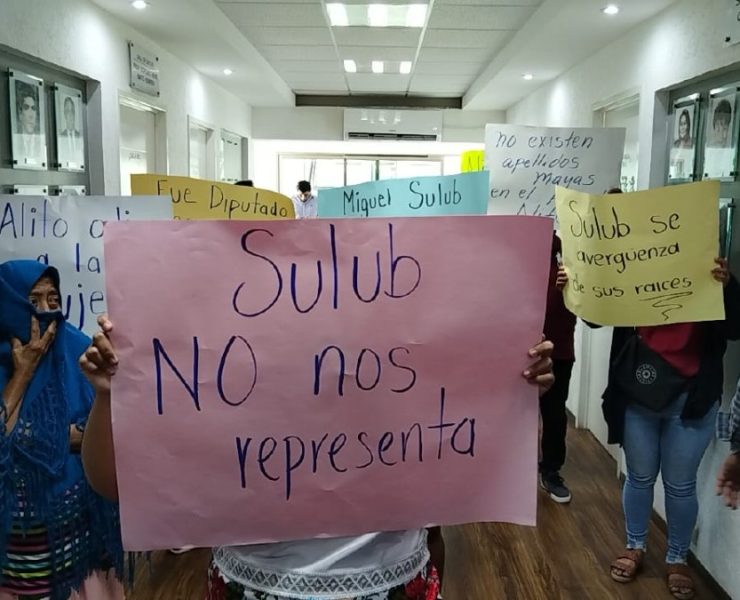 Alito
a la
Fue Diputado
Miguel Sulub
no existen
apellidos
Mayas
en el
Sulub se
avergüenza
de sus raices
Sulub
NO nos
representa